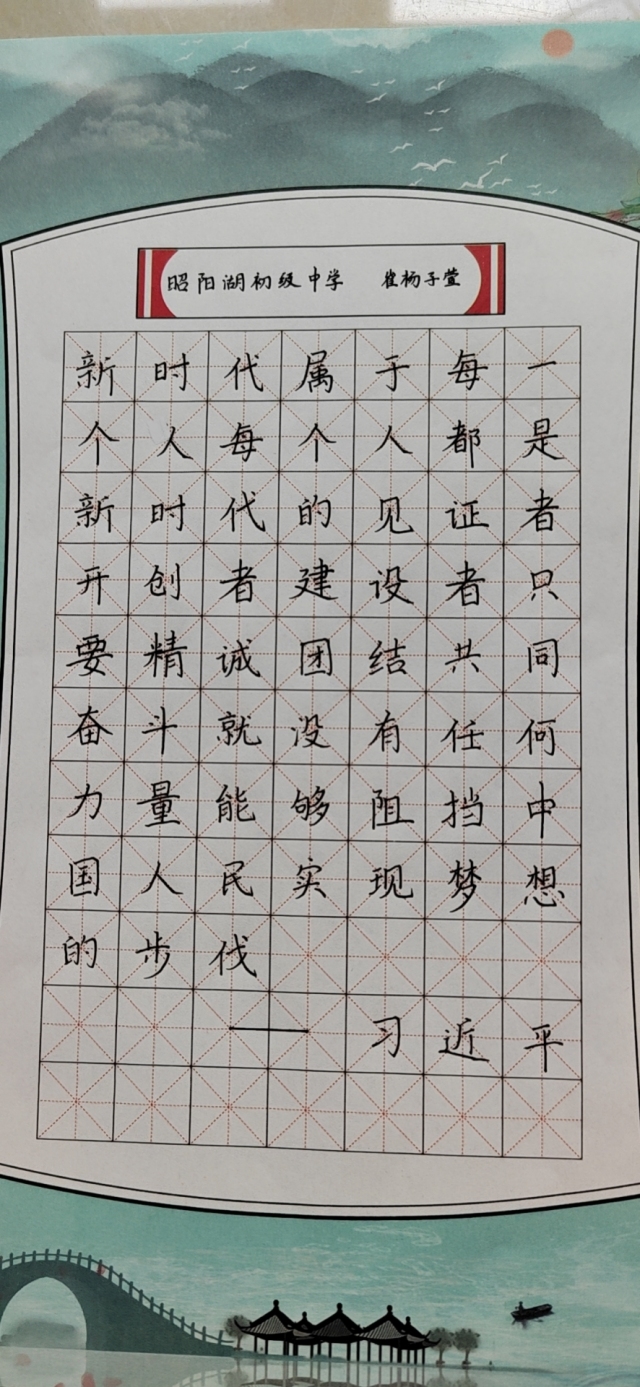 昭阳湖初级中学 崔杨子萱
新时代属于每一
个人每个人都是
新时代的见证者
开创者建设者只
要精诚团结共同
奋斗就没有任何
力量能够阻挡中
国人民实现梦想
的步伐
——习近平